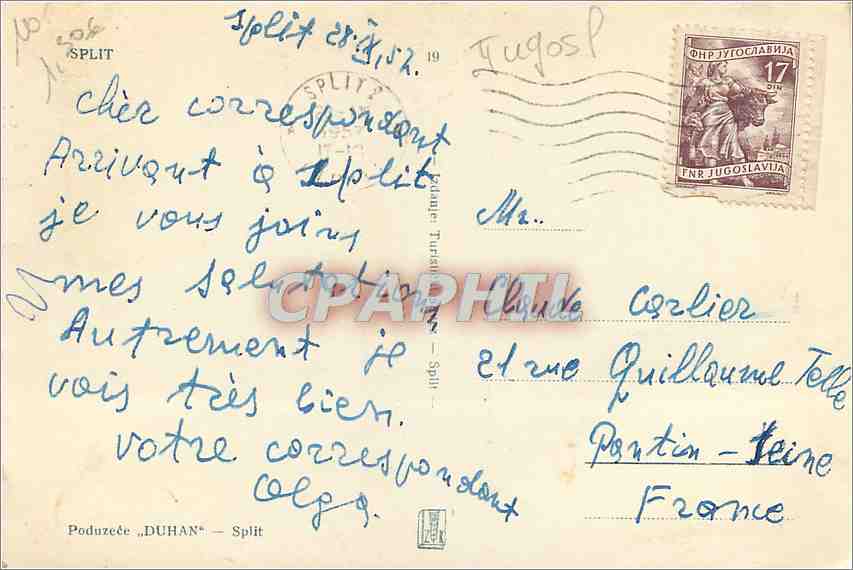 Split 28.IX.52.
SPLIT
19
Jugosl
SPLIT 2
ФНР ЈУГОСЛАВИЈА
17
DIN
FNR JUGOSLAVIJA
Chèr correspondant
Arrivant à Split
je vous joins
mes salutations
Autrement je
vois très bien.
Votre correspondant
Olga.
Poduzeće „DUHAN“ — Split
Izdanje: Turist
— Split —
CPAPHIL
Mr..
Claude Carlier
21 rue Quillaume Telle
Pantin - Seine
France